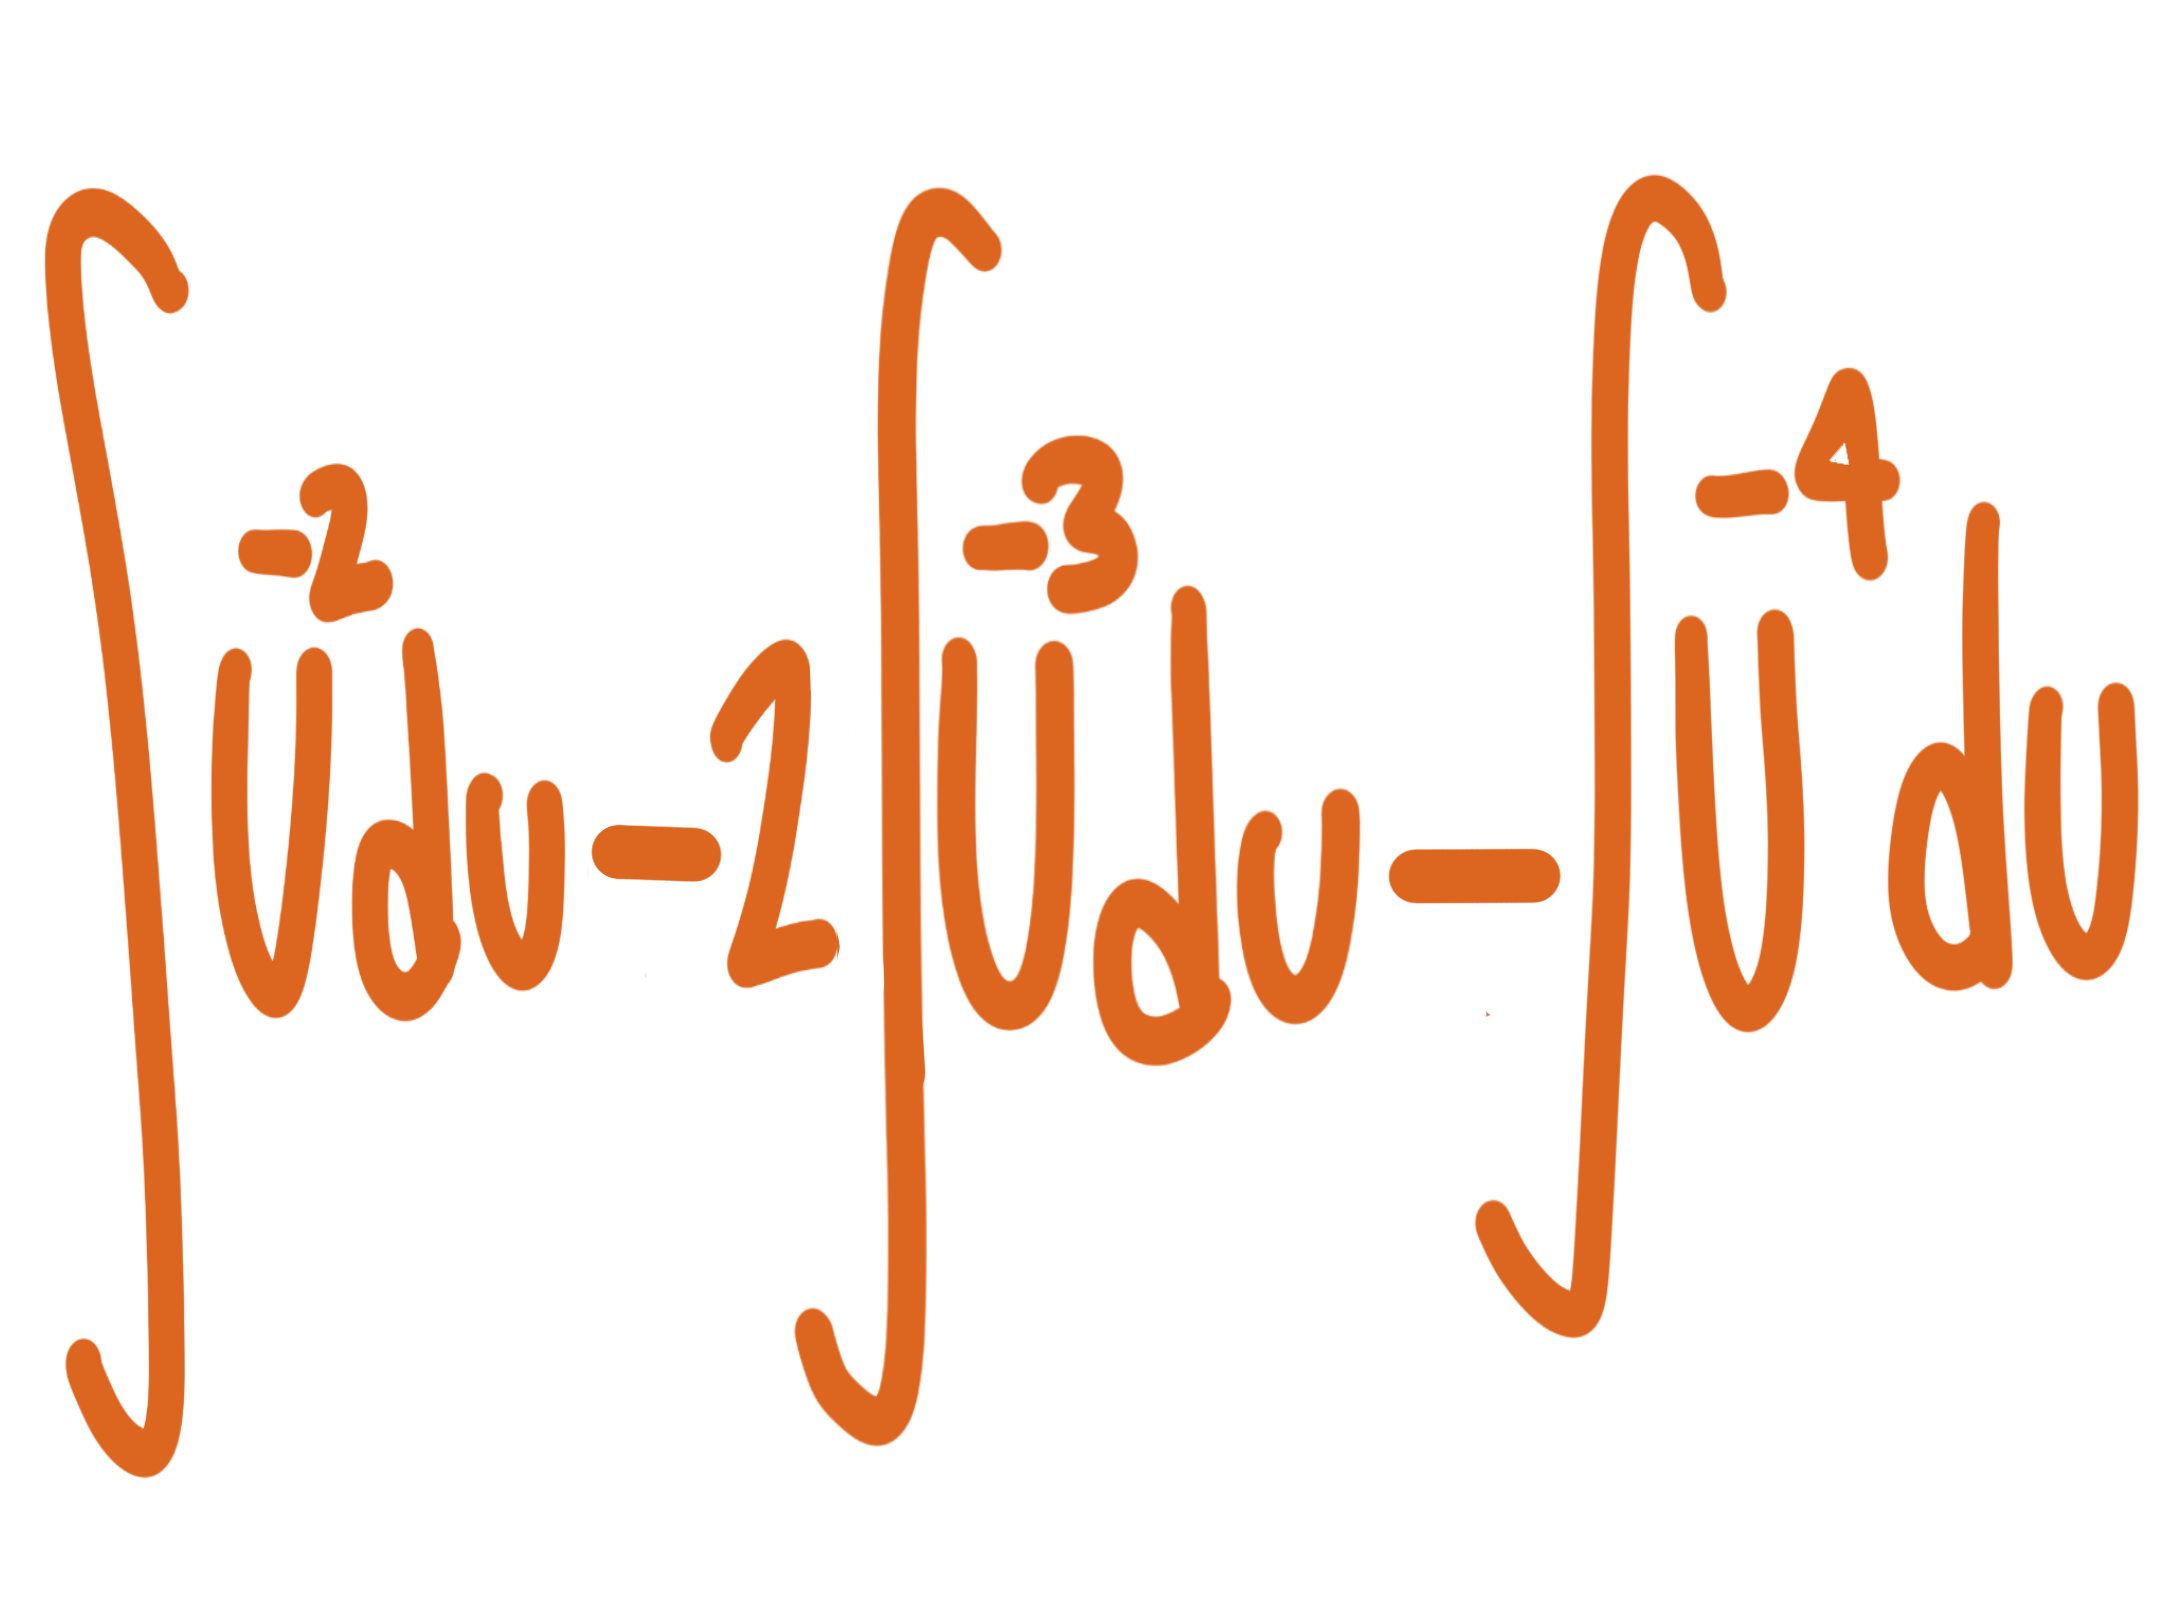 ∫u⁻²du-2∫u⁻³du-∫u⁻⁴du